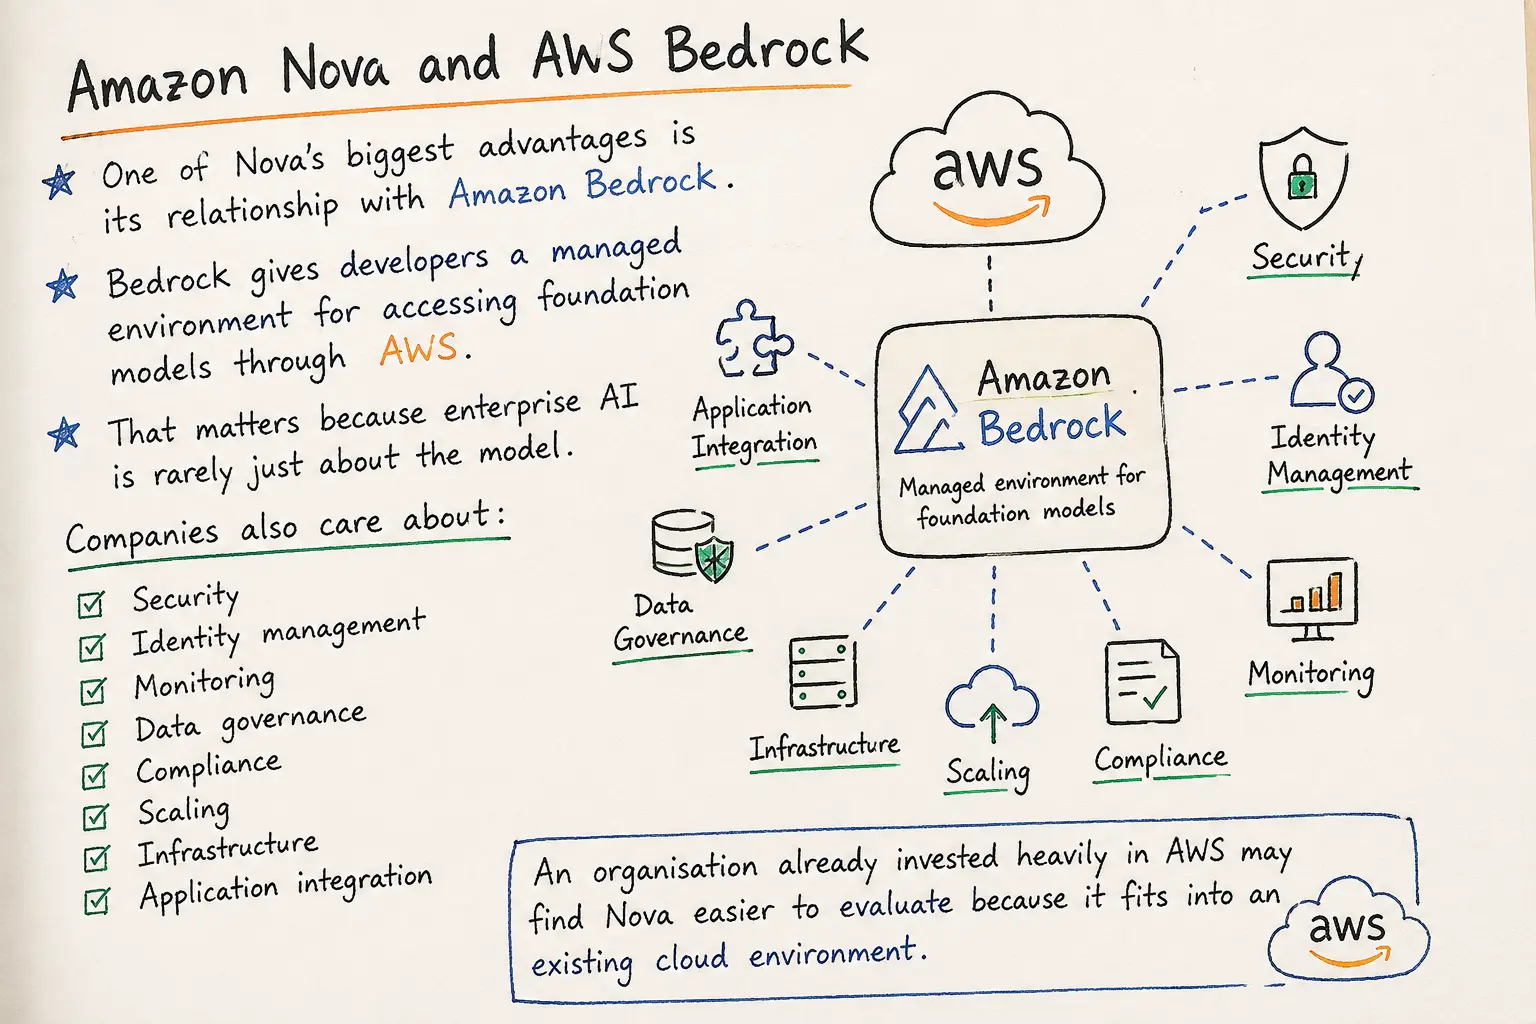 Amazon Nova and AWS Bedrock
One of Nova's biggest advantages is
its relationship with Amazon Bedrock.
Bedrock gives developers a managed
environment for accessing foundation
models through AWS.
That matters because enterprise AI
is rarely just about the model.
Companies also care about:
Security
Identity management
Monitoring
Data governance
Compliance
Scaling
Infrastructure
Application integration
aws
Security
Application
Integration
Amazon
Bedrock
Managed environment for
foundation models
Identity
Management
Data
Governance
Infrastructure
Scaling
Compliance
Monitoring
An organisation already invested heavily in AWS may
find Nova easier to evaluate because it fits into an
existing cloud environment.
aws